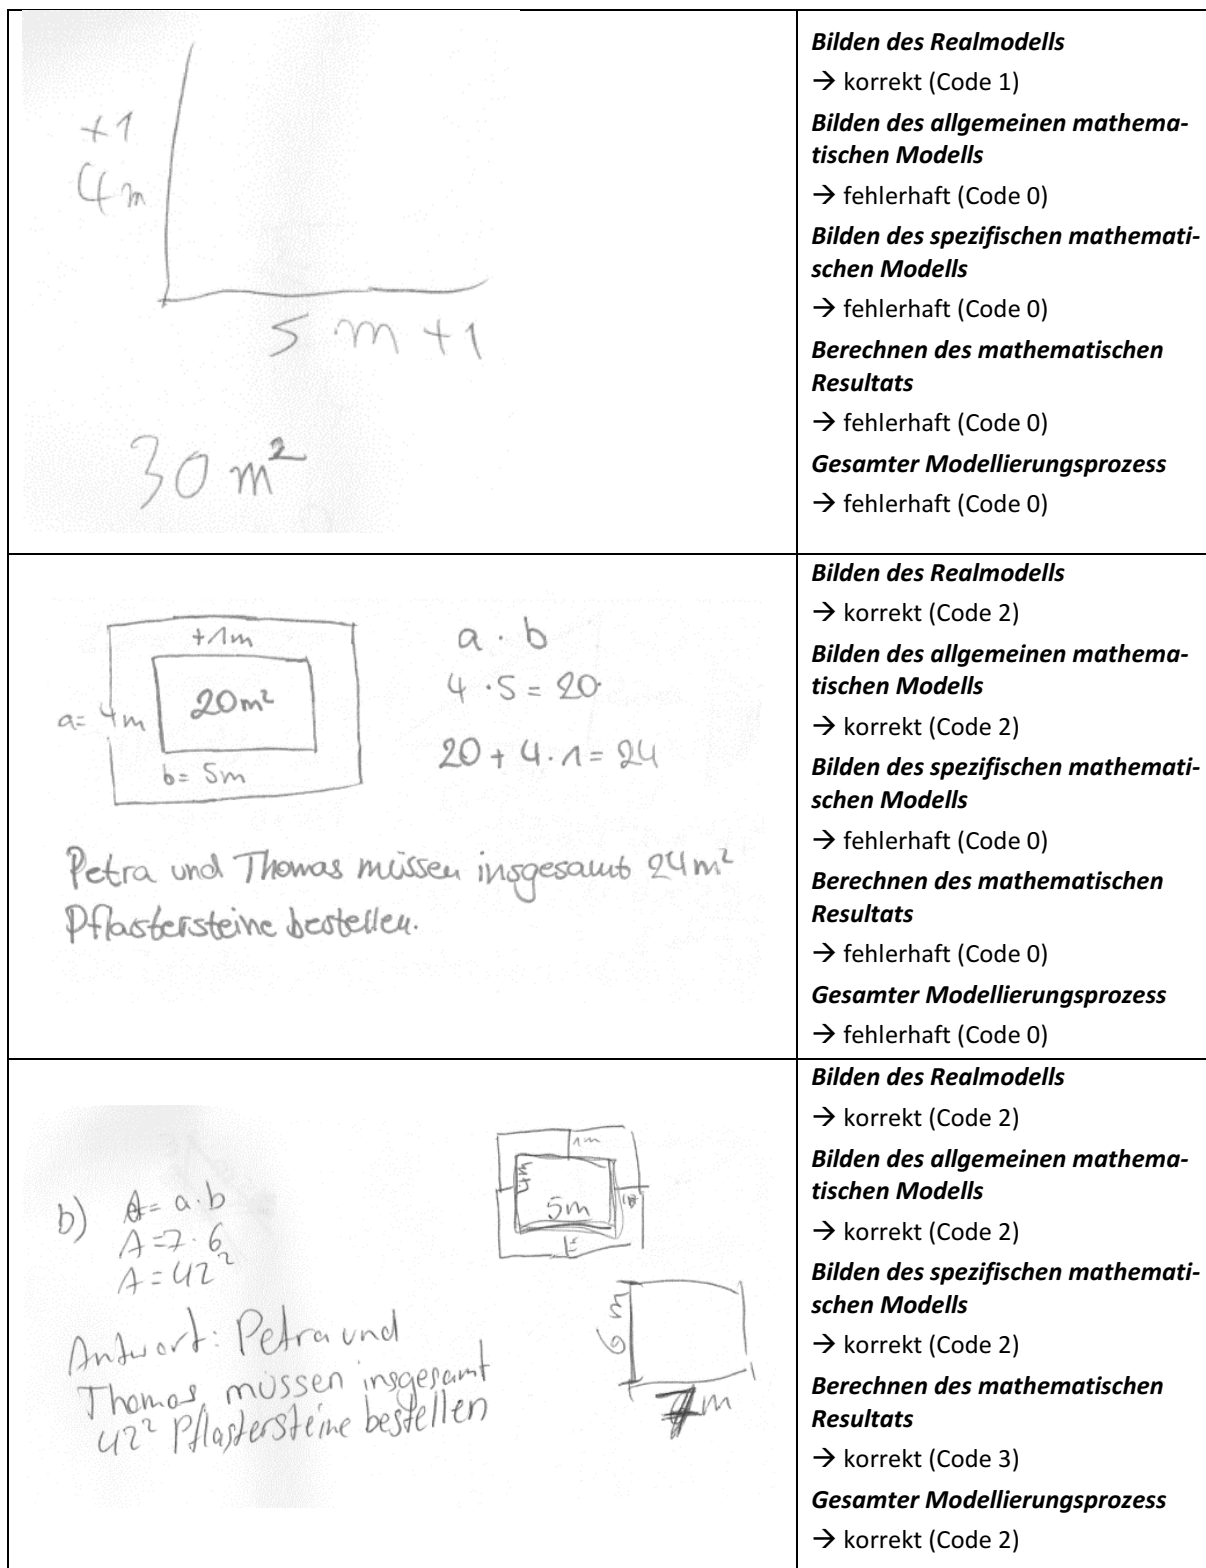 +1
4m
5 m +1
30 m²
Bilden des Realmodells
→ korrekt (Code 1)
Bilden des allgemeinen mathema-
tischen Modells
→ fehlerhaft (Code 0)
Bilden des spezifischen mathemati-
schen Modells
→ fehlerhaft (Code 0)
Berechnen des mathematischen
Resultats
→ fehlerhaft (Code 0)
Gesamter Modellierungsprozess
→ fehlerhaft (Code 0)
+1m
20m²
a= 4m
b= 5m
a · b
4 · 5 = 20
20 + 4 · 1 = 24
Petra und Thomas müssen insgesamt 24m²
Pflastersteine bestellen.
Bilden des Realmodells
→ korrekt (Code 2)
Bilden des allgemeinen mathema-
tischen Modells
→ korrekt (Code 2)
Bilden des spezifischen mathemati-
schen Modells
→ fehlerhaft (Code 0)
Berechnen des mathematischen
Resultats
→ fehlerhaft (Code 0)
Gesamter Modellierungsprozess
→ fehlerhaft (Code 0)
1m
4m
5m
b) A= a·b
A=7·6
A=42²
6 m
7m
Antwort: Petra und
Thomas müssen insgesamt
42² Pflastersteine bestellen
Bilden des Realmodells
→ korrekt (Code 2)
Bilden des allgemeinen mathema-
tischen Modells
→ korrekt (Code 2)
Bilden des spezifischen mathemati-
schen Modells
→ korrekt (Code 2)
Berechnen des mathematischen
Resultats
→ korrekt (Code 3)
Gesamter Modellierungsprozess
→ korrekt (Code 2)